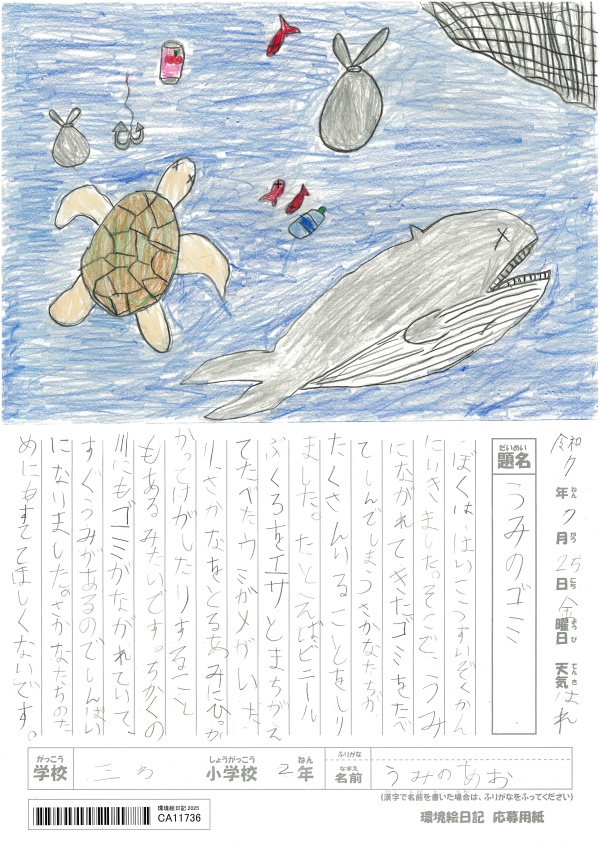 令和7年7月25日金曜日 天気はれ
題名 うみのゴミ
ぼくは、はいこうすいぞくかん
にいきました。そこで、うみ
にながれてきたゴミをたべ
てしんでしまうさかなたちが
たくさんいることをしり
ました。たとえばビニール
ぶくろをエサとまちがえ
てたべたウミガメがいた
り、さかなをとるあみにひっか
かってけがしたりすること
もあるみたいです。ちかくの
川にもゴミがながれていて、
すぐうみがあるのでしんぱい
になりました。さかなたちのた
めにもすててほしくないです。
がっこう 学校
しょうがっこう 小学校 2年
ふりがな
なまえ 名前 うみのあお
(漢字で名前を書いた場合は、ふりがなをふってください)
環境絵日記 2025
CA11736
環境絵日記 応募用紙